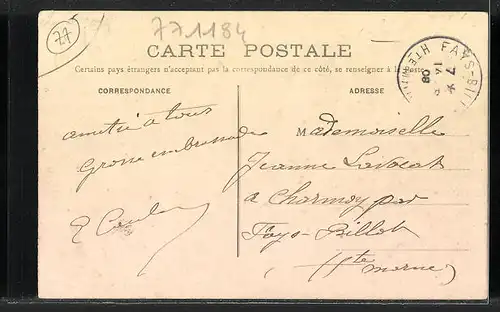 77
771184
CARTE POSTALE
Certains pays étrangers n'acceptant pas la correspondance de ce côté, se renseigner à la Poste
CORRESPONDANCE
ADRESSE
FAYS-BILL
Hte
08
amitié à tous
Grosse embrassade
E
Mademoiselle
Jeanne Lavocat
a Charmoy par
Fays-Billot
Hte marne